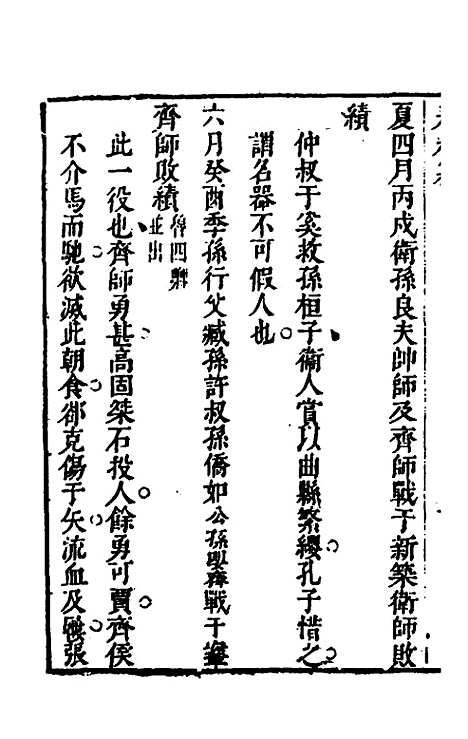 夏四月丙戌衛孫良夫帥師及齊師戰于新築衛師敗
績
仲叔于奚救孫桓子衛人賞以曲縣繁纓孔子惜之
謂名器不可假人也
六月癸酉季孫行父臧孫許叔孫僑如公孫嬰齊戰于鞌
齊師敗績
並出
此一役也齊師勇甚高固桀石投人餘勇可賈齊侯
不介馬而馳欲滅此朝食郤克傷于矢流血及屨張